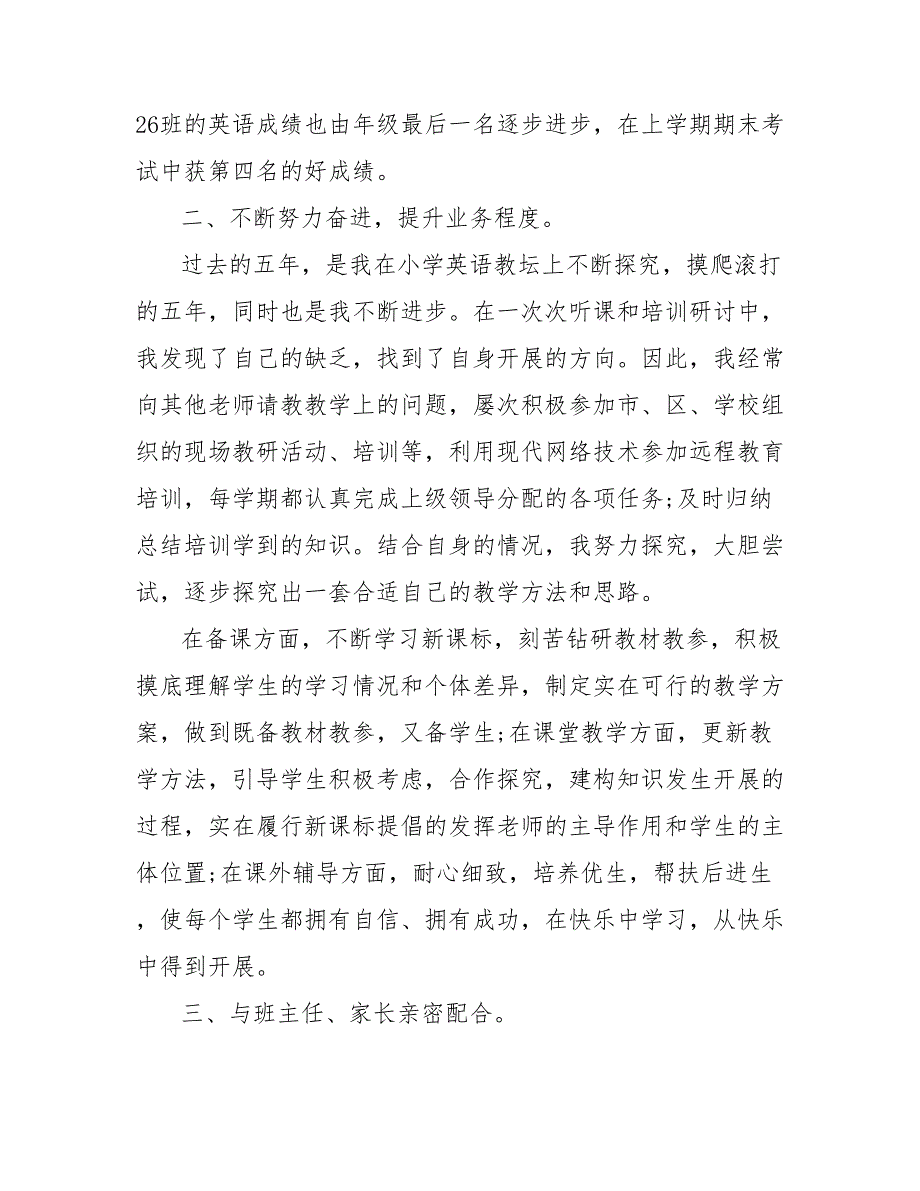 26班的英语成绩也由年级最后一名逐步进步，在上学期期末考
试中获第四名的好成绩。
二、不断努力奋进，提升业务程度。
过去的五年，是我在小学英语教坛上不断探究，摸爬滚打
的五年，同时也是我不断进步。在一次次听课和培训研讨中，
我发现了自己的缺乏，找到了自身开展的方向。因此，我经常
向其他老师请教教学上的问题，屡次积极参加市、区、学校组
织的现场教研活动、培训等，利用现代网络技术参加远程教育
培训，每学期都认真完成上级领导分配的各项任务;及时归纳
总结培训学到的知识。结合自身的情况，我努力探究，大胆尝
试，逐步探究出一套合适自己的教学方法和思路。
在备课方面，不断学习新课标，刻苦钻研教材教参，积极
摸底理解学生的学习情况和个体差异，制定实在可行的教学方
案，做到既备教材教参，又备学生;在课堂教学方面，更新教
学方法，引导学生积极考虑，合作探究，建构知识发生开展的
过程，实在履行新课标提倡的发挥老师的主导作用和学生的主
体位置;在课外辅导方面，耐心细致，培养优生，帮扶后进生
，使每个学生都拥有自信、拥有成功，在快乐中学习，从快乐
中得到开展。
三、与班主任、家长亲密配合。